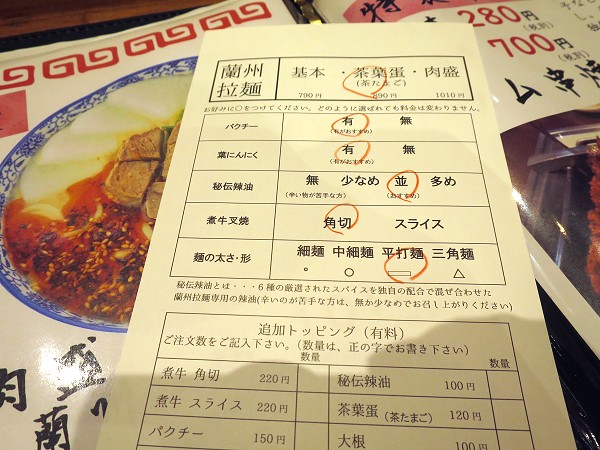 蘭州
拉麺
基本 ・茶葉蛋・肉盛
(茶たまご)
790円 890円 1010円
お好みに〇をつけてください。どのように選ばれても料金は変わりません。
パクチー 有 無
(有がおすすめ)
葉にんにく 有 無
(有がおすすめ)
秘伝辣油 無 少なめ 並 多め
(辛い物が苦手な方) (おすすめ)
煮牛叉焼 角切 スライス
麺の太さ・形 細麺 中細麺 平打麺 三角麺
秘伝辣油とは・・・6種の厳選されたスパイスを独自の配合で混ぜ合わせた
蘭州拉麺専用の辣油(辛いのが苦手な方は、無か少なめでお召し上がりください)
追加トッピング（有料）
ご注文数をご記入下さい。（数量は、正の字でお書き下さい）
数量 数量
煮牛 角切 220円 秘伝辣油 100円
煮牛 スライス 220円 茶葉蛋(茶たまご) 120円
パクチー 150円 大根 100円
280円
(税別)
700円
(税別)
肉
蘭